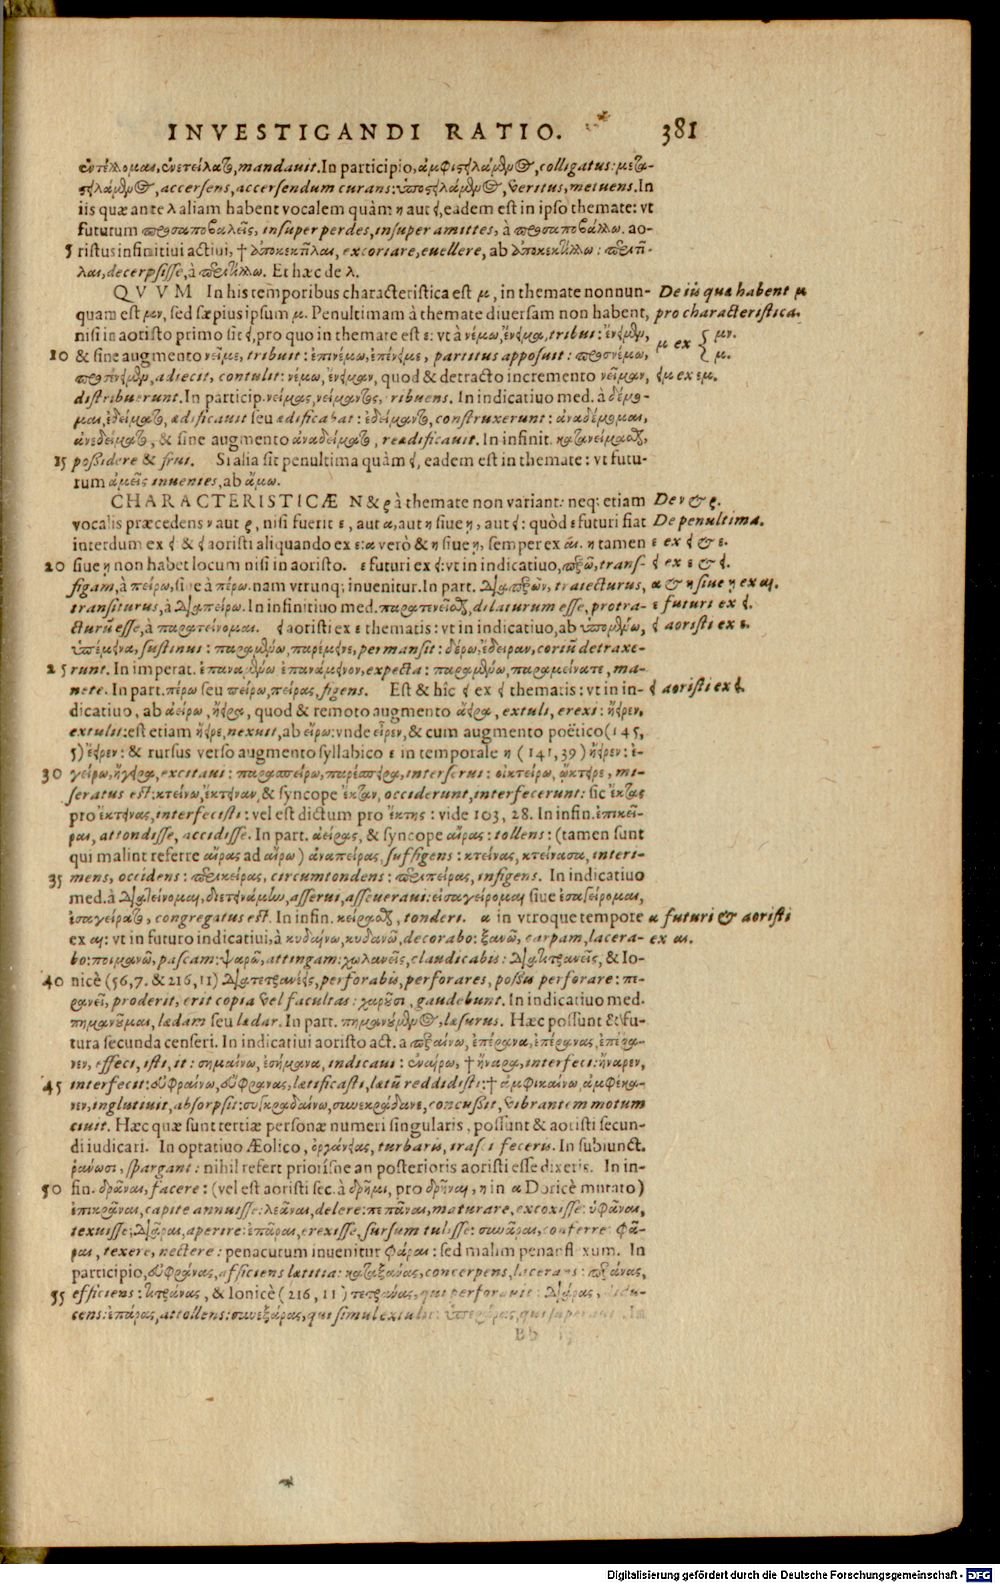 INVESTIGANDI RATIO. 381
ἐντέλλομαι, ἐνετείλατο, mandauit. In participio, ἀμφιστειλάμενος, colligatus: μετα-
στειλάμενος, accersens, accersendum curans: ὑποστειλάμενος, veritus, metuens. In
iis quæ ante λ aliam habent vocalem quàm η aut ει, eadem est in ipso themate: vt
futurum προσαποβαλεῖς, insuper perdes, insuper amittes, à προσαποβάλλω. ao-
5 ristus infinitiui actiui, † ἀποκεκτῖλαι, excoriare, euellere, ab : περιτῖ-
λαι, decerpsisse, à περιτίλλω. Et hæc de λ.
QVVM In his temporibus characteristica est μ, in themate nonnun- De iis quæ habent μ
quam est μν, sed sæpius ipsum μ. Penultimam à themate diuersam non habent, pro characteristica.
nisi in aoristo primo sit ει, pro quo in themate est ε: vt à νέμω, ἔνειμα, tribui: ἔνειμεν, μ ex { μν.
10 & sine augmento νεῖμε, tribuit: ἐπινέμω, ἐπένειμε, partitus apposuit: προσνέμω, μ.
προσένειμεν, adiecit, contulit: νέμω, ἔνειμαν, quod & detracto incremento νεῖμαν, ειμ ex εμ.
distribuerunt. In particip. νείμας, νείμαντος, tribuens. In indicatiuo med. à δέμο-
μαι, ἐδείματο, ædificauit seu ædificabat: ἐδείμαντο, construxerunt: ἀναδέμομαι,
ἀνεδείματο, & sine augmento ἀναδείματο, reædificauit. In infinit. κατανείμασθαι,
15 possidere & frui. Si alia sit penultima quàm ει, eadem est in themate: vt futu-
rum ἀμεῖς inuenies, ab ἄμω.
CHARACTERISTICÆ N & ρ à themate non variant: neq; etiam De ν & ρ.
vocalis præcedens ν aut ρ, nisi fuerit ε, aut α, aut η siue ῃ, aut ει: quòd ε futuri fiat De penultima.
interdum ex ει & ει aoristi aliquando ex ε: α verò & η siue ῃ, semper ex αι. η tamen ε ex ει & ε.
20 siue ῃ non habet locum nisi in aoristo. ε futuri ex ει: vt in indicatiuo, περῶ, trans- ει ex ε & ει.
figam, à πείρω, siue à πέρω. nam vtrunq; inuenitur. In part. διαπερῶν, traiecturus, α & η siue ῃ ex αι.
transiturus, à διαπείρω. In infinitiuo med. παρατενεῖσθαι, dilaturum esse, protra- ε futuri ex ει.
cturũ esse, à παρατείνομαι. ει aoristi ex ε thematis: vt in indicatiuo, ab ὑπομένω, ει aoristi ex ε.
ὑπέμεινα, sustinui: παραμένω, παρέμεινε, permansit: δέρω, ἔδειραν, coriũ detraxe-
25 runt. In imperat. ἐπαναμένω ἐπανάμεινον, expecta: παραμένω, παραμείνατε, ma-
nete. In part. πέρω seu πείρω, πείρας, figens. Est & hîc ει ex ει thematis: vt in in- ει aoristi ex ει.
dicatiuo, ab ἀείρω, ἤειρα, quod & remoto augmento ἄειρα, extuli, erexi: ἤειρεν,
extulit: est etiam ἤειρε, nexuit, ab εἴρω: vnde εἶρεν, & cum augmento poëtico (145,
5) ἔειρεν: & rursus verso augmento syllabico ε in temporale η (141, 39) ἤειρεν: ἐ-
30 γείρω, ἤγειρα, excitaui: παρασπείρω, παρέσπειρα, interserui: οἰκτείρω, ᾤκτειρε, mi-
seratus est: κτείνω, ἔκτειναν, & syncope ἔκταν, occiderunt, interfecerunt: sic ἔκτας
pro ἔκτεινας, interfecisti: vel est dictum pro ἔκτης: vide 103, 28. In infin. ἐπικεῖ-
ραι, attondisse, accidisse. In part. ἀείρας, & syncope αἴρας: tollens: (tamen sunt
qui malint referre αἴρας ad αἴρω) ἀναπείρας, suffigens: κτείνας, κτείνασα, interi-
35 mens, occidens: περικείρας, circumtondens: περιπείρας, infigens. In indicatiuo
med. à διατείνομαι, διετεινάμην, asserui, asseueraui: εἰσαγείρομαι siue ἐσαγείρομαι,
ἐσαγείρατο, congregatus est. In infin. κείρασθαι, tonderi. α in vtroque tempore α futuri & aoristi
ex αι: vt in futuro indicatiui, à κυδαίνω, κυδανῶ, decorabo: ξανῶ, carpam, lacera- ex αι.
bo: ποιμανῶ, pascam: ψαρῶ, attingam: χωλανεῖς, claudicabis: διατετρανεῖς, & Io-
40 nicè (56, 7. & 216, 11) διατετρανέεις, perforabis, perforares, possis perforare: πε-
ρανεῖ, proderit, erit copia vel facultas: χαροῦσι, gaudebunt. In indicatiuo med.
πημανοῦμαι, lædam seu lædar. In part. πημανούμενος, læsurus. Hæc possunt & fu-
tura secunda censeri. In indicatiui aoristo act. à περαίνω, ἐπέρανα, ἐπέρανας, ἐπέρα-
νεν, effeci, isti, it: σημαίνω, ἐσήμανα, indicaui: ἐναίρω, † ἤναρα, interfeci: ἤναρεν,
45 interfecit: εὐφραίνω, εὔφρανας, lætificasti, lætũ reddidisti: † ἀμφικαίνω ἀμφεκα-
νεν, inglutiuit, absorpsit: συγκραδαίνω, συνεκράδανε, concussit, vibrantem motum
ciuit. Hæc quæ sunt tertiæ personæ numeri singularis, possunt & aoristi secun-
di iudicari. In optatiuo Æolico, ὀργάνειας, turbaris, irasci feceris. In subiunct.
ῥάνωσι, spargant: nihil refert priorísne an posterioris aoristi esse dixeris. In in-
50 fin. δρᾶναι, facere: (vel est aoristi sec. à δρῆμι, pro δρῆναι, η in α Doricè mutato)
ἐπικρᾶναι, capite annuisse: λεᾶναι, delere: πεπᾶναι, maturare, excoxisse: ὑφᾶναι,
texuisse: διᾶραι, aperire: ἐπᾶραι, erexisse, sursum tulisse: συνᾶραι, conferre: φᾶ-
ραι, texere, nectere: penacutum inuenitur φάραι: sed malim penarfl xum. In
participio, εὐφράνας, afficiens lætitia: καταξάνας, concerpens, lacerans: περάνας,
55 efficiens: τετράνας, & Ionicè (216, 11) τετρήνας, qui perforauit: διάρας, didu-
cens: ἐπάρας, attollens: συνεξάρας, qui simul extulit: ὑπεράρας, qui superauit. In